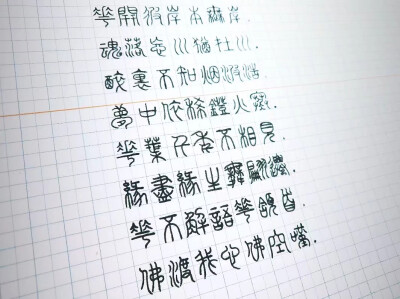 華開彼岸本無岸.
魂落忘川猶在川.
醉裏不知烟波浩.
夢中依稀鐙火寒.
華葉千年不相見.
緣盡緣生舞翩躚.
華不解語華頷首.
佛渡我心佛空嘆.